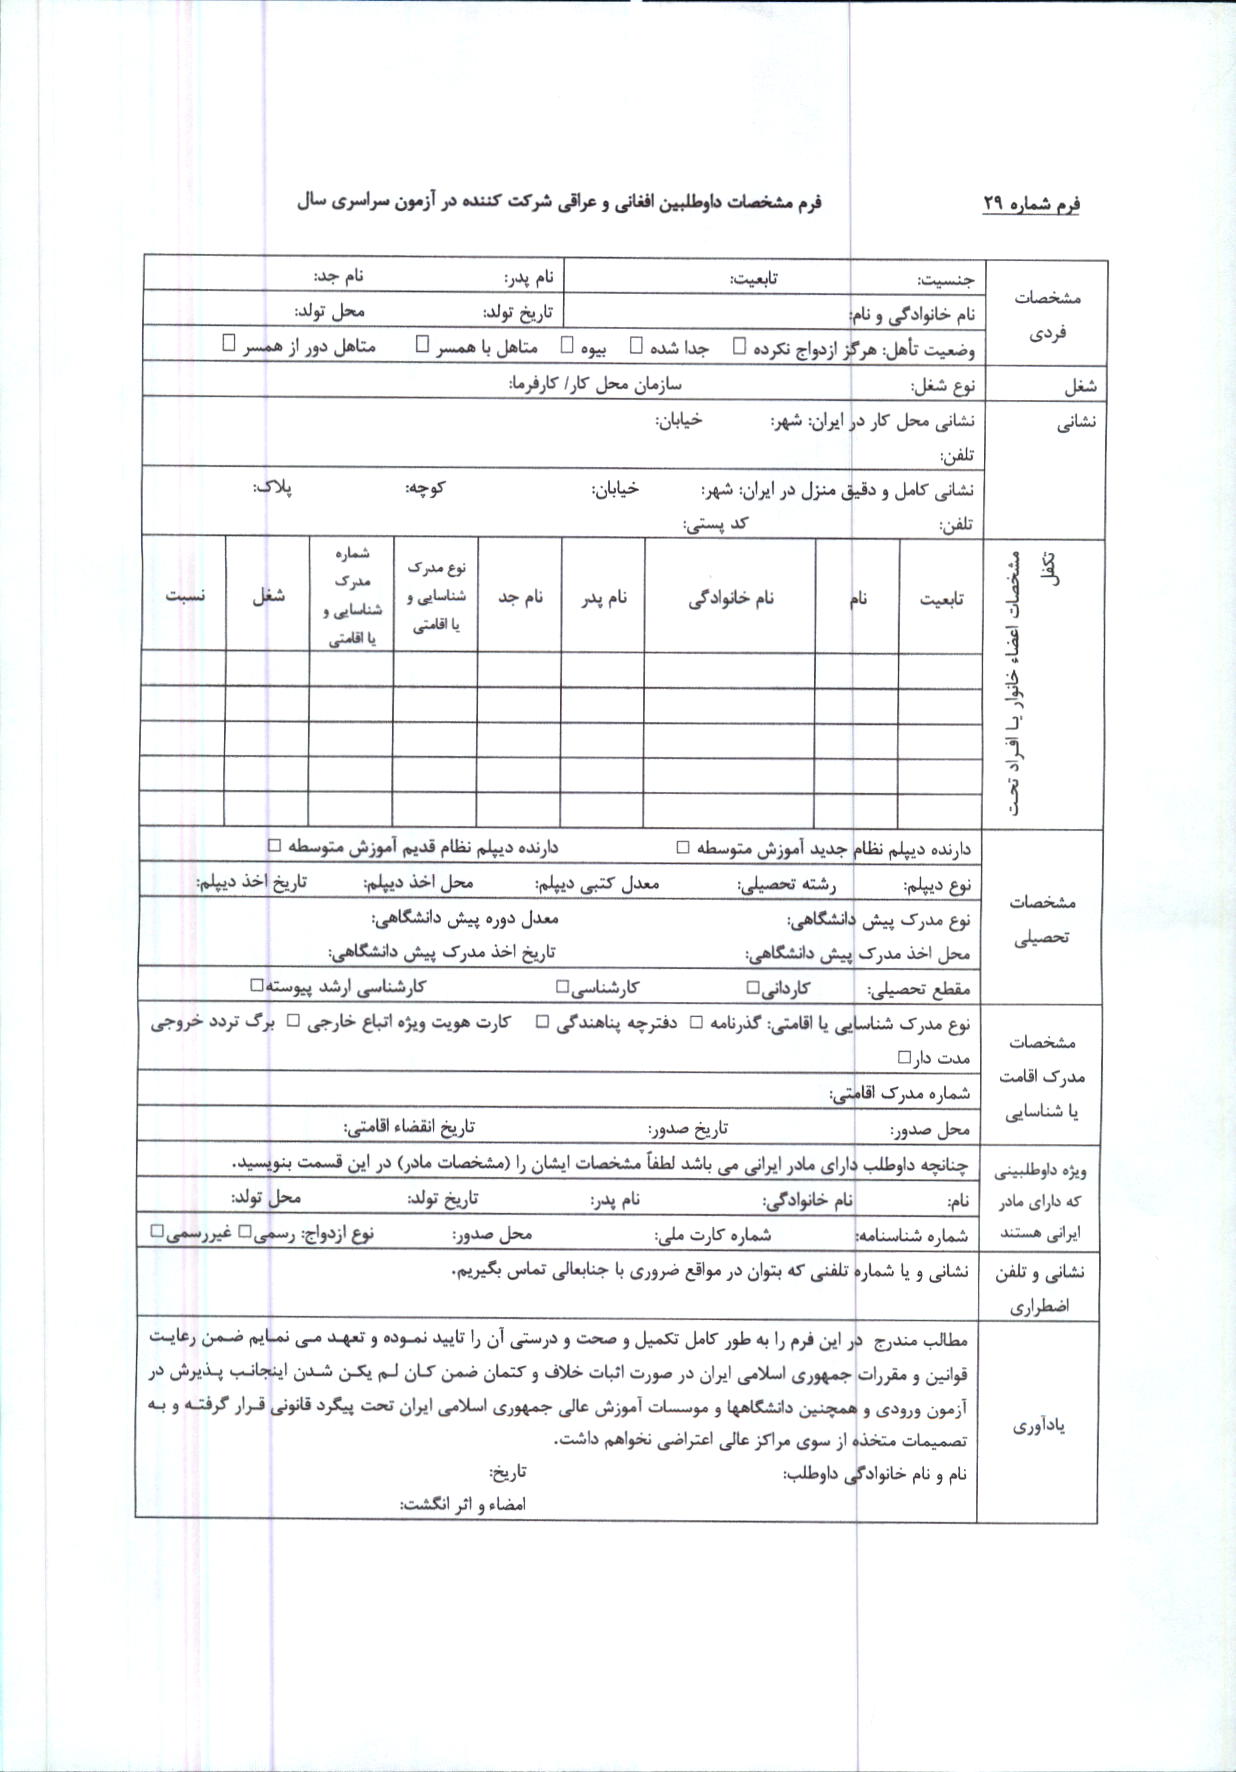 فرم شماره ۲۹
فرم مشخصات داوطلبین افغانی و عراقی شرکت کننده در آزمون سراسری سال
مشخصات
فردی
جنسیت: تابعیت: نام پدر: نام جد:
نام خانوادگی و نام: تاریخ تولد: محل تولد:
وضعیت تأهل: هرگز ازدواج نکرده □ جدا شده □ بیوه □ متاهل با همسر □ متاهل دور از همسر □
شغل
نوع شغل: سازمان محل کار/ کارفرما:
نشانی
نشانی محل کار در ایران: شهر: خیابان:
تلفن:
نشانی کامل و دقیق منزل در ایران: شهر: خیابان: کوچه: پلاک:
تلفن: کد پستی:
مشخصات اعضاء خانوار یا افراد تحت
تکفل
تابعیت
نام
نام خانوادگی
نام پدر
نام جد
نوع مدرک
شناسایی و
یا اقامتی
شماره
مدرک
شناسایی و
یا اقامتی
شغل
نسبت
مشخصات
تحصیلی
دارنده دیپلم نظام جدید آموزش متوسطه □ دارنده دیپلم نظام قدیم آموزش متوسطه □
نوع دیپلم: رشته تحصیلی: معدل کتبی دیپلم: محل اخذ دیپلم: تاریخ اخذ دیپلم:
نوع مدرک پیش دانشگاهی: معدل دوره پیش دانشگاهی:
محل اخذ مدرک پیش دانشگاهی: تاریخ اخذ مدرک پیش دانشگاهی:
مقطع تحصیلی: کاردانی□ کارشناسی□ کارشناسی ارشد پیوسته□
مشخصات
مدرک اقامت
یا شناسایی
نوع مدرک شناسایی یا اقامتی: گذرنامه □ دفترچه پناهندگی □ کارت هویت ویژه اتباع خارجی □ برگ تردد خروجی
مدت دار□
شماره مدرک اقامتی:
محل صدور: تاریخ صدور: تاریخ انقضاء اقامتی:
ویژه داوطلبینی
که دارای مادر
ایرانی هستند
چنانچه داوطلب دارای مادر ایرانی می باشد لطفاً مشخصات ایشان را (مشخصات مادر) در این قسمت بنویسید.
نام: نام خانوادگی: نام پدر: تاریخ تولد: محل تولد:
شماره شناسنامه: شماره کارت ملی: محل صدور: نوع ازدواج: رسمی□ غیررسمی□
نشانی و تلفن
اضطراری
نشانی و یا شماره تلفنی که بتوان در مواقع ضروری با جنابعالی تماس بگیریم.
یادآوری
مطالب مندرج در این فرم را به طور کامل تکمیل و صحت و درستی آن را تایید نموده و تعهد می نمایم ضمن رعایت
قوانین و مقررات جمهوری اسلامی ایران در صورت اثبات خلاف و کتمان ضمن کان لم یکن شدن اینجانب پذیرش در
آزمون ورودی و همچنین دانشگاهها و موسسات آموزش عالی جمهوری اسلامی ایران تحت پیگرد قانونی قرار گرفته و به
تصمیمات متخذه از سوی مراکز عالی اعتراضی نخواهم داشت.
نام و نام خانوادگی داوطلب: تاریخ:
امضاء و اثر انگشت: